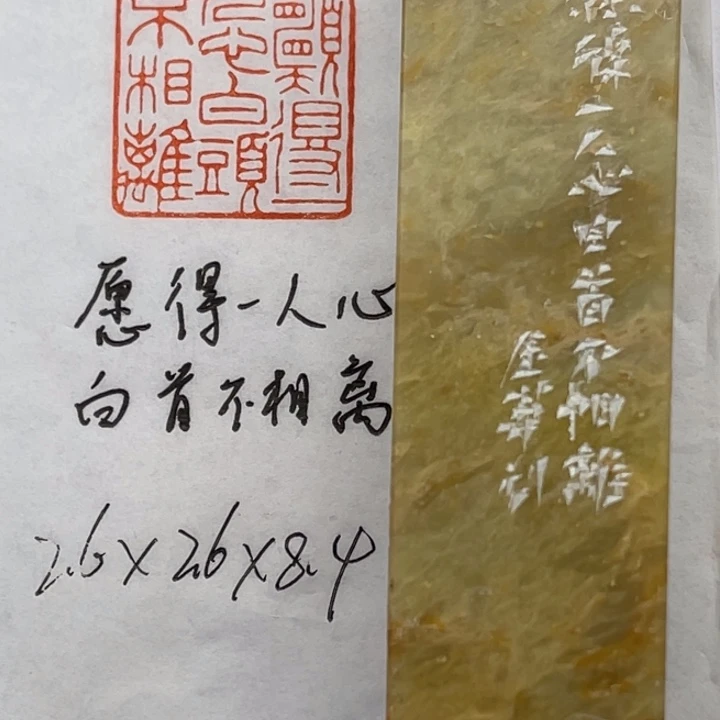 願得一
心白頭
不相離
愿得一人心
白首不相离
2.6×2.6×8.4
得一人心白首不相離